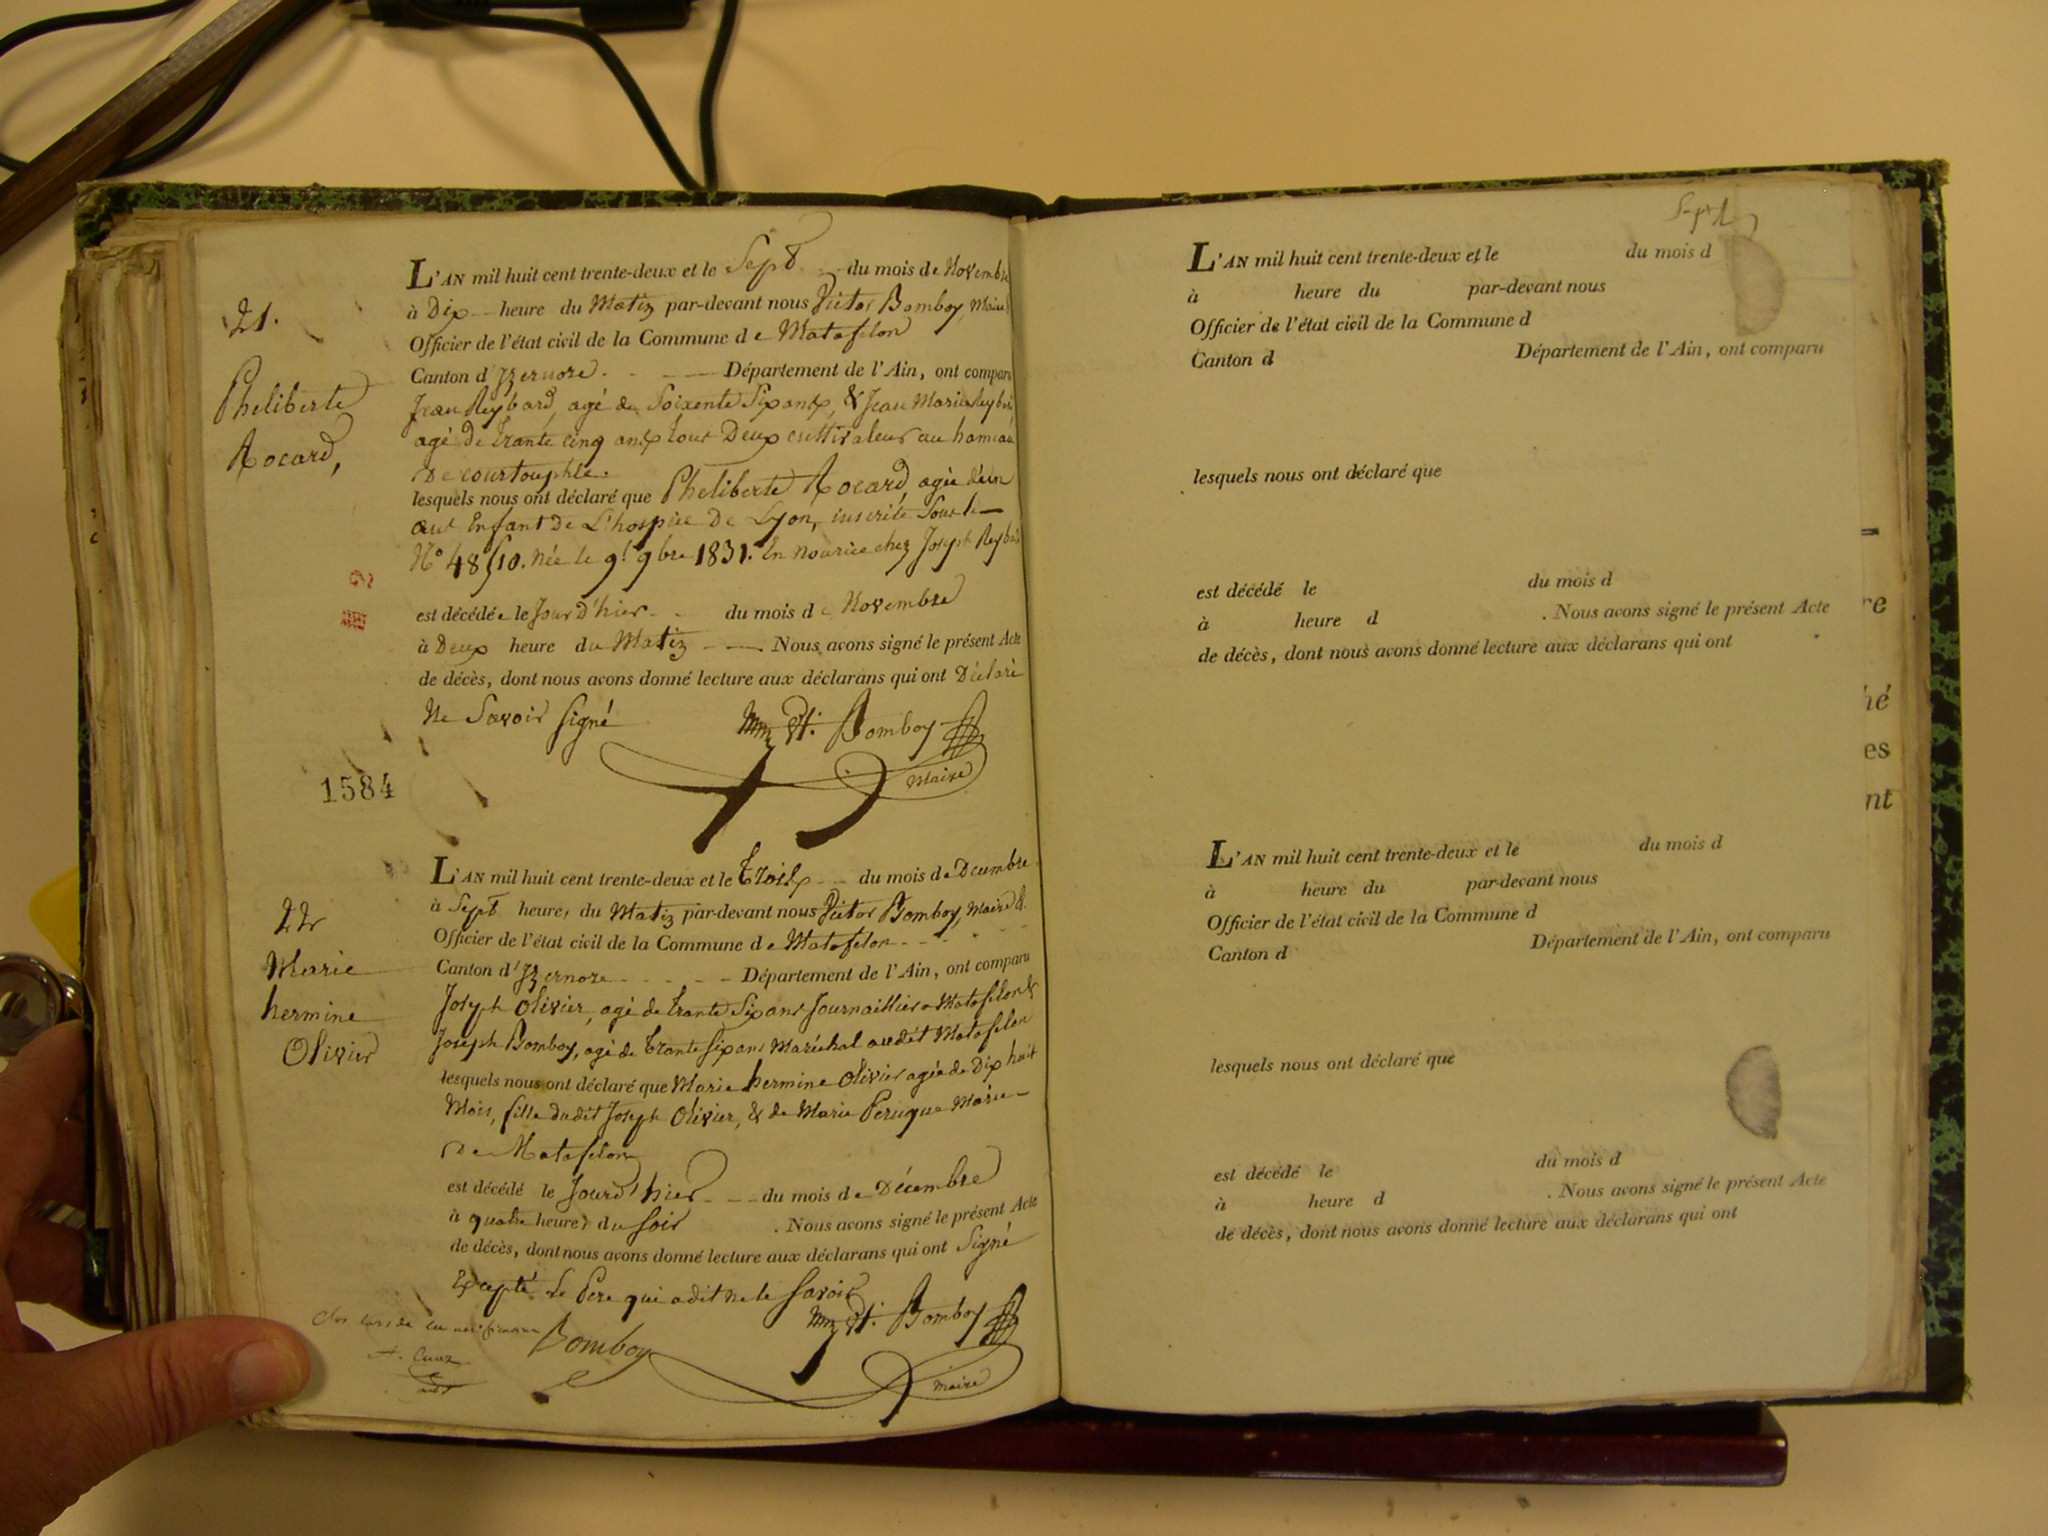 21.
Pheliberte
Rocard,
L'AN mil huit cent trente-deux et le Sept du mois de Novembre
à Dix heure du Matin par-devant nous Victor Bomboy, Maire
Officier de l'état civil de la Commune de Matafelon
Canton d'Izernore. Département de l'Ain, ont comparu
Jean Reybard, agé de Soixente Six ans, & Jean Marie Reybard
agé de trante cinq ans tous Deux cultivateur au hameau
De courtouphle.
lesquels nous ont déclaré que Pheliberte Rocard, agée d'un
ant Enfant de L'hospice De Lyon, inscrite Sous le
N° 48510. Née le 9. 9bre 1831. En nourice chez Joseph Reybard
est décédée le Jour d'hier du mois de Novembre
à Deux heure du Matin Nous avons signé le présent Acte
de décès, dont nous avons donné lecture aux déclarans qui ont Déclaré
Ne Savoir Signé
Bomboy
Maire
1584
22
Marie
hermine
Olivier
L'AN mil huit cent trente-deux et le trois du mois de Décembre
à Sept heure, du Matin par-devant nous Victor Bomboy, Maire &
Officier de l'état civil de la Commune de Matafelon
Canton d'Izernore Département de l'Ain, ont comparu
Joseph Olivier, agé de trante Six ans Journaillier a Matafelon &
Joseph Bomboy, agé de trante six ans Maréchal audit Matafelon
lesquels nous ont déclaré que Marie hermine Olivier agée de Dix huit
Mois, fille dudit Joseph Olivier, & de Marie Peruque Marie
De Matafelon
est décédé le Jourd'hier du mois de Décembre
à quatre heures du Soir . Nous avons signé le présent Acte
de décès, dont nous avons donné lecture aux déclarans qui ont Signé
Excepté Le Pere qui a dit ne le Savoir
Bomboy
Bomboy
Maire
L'AN mil huit cent trente-deux et le du mois d
à heure du par-devant nous
Officier de l'état civil de la Commune d
Canton d Département de l'Ain, ont comparu
lesquels nous ont déclaré que
est décédé le du mois d
à heure d . Nous avons signé le présent Acte
de décès, dont nous avons donné lecture aux déclarans qui ont
L'AN mil huit cent trente-deux et le du mois d
à heure du par-devant nous
Officier de l'état civil de la Commune d
Canton d Département de l'Ain, ont comparu
lesquels nous ont déclaré que
est décédé le du mois d
à heure d . Nous avons signé le présent Acte
de décès, dont nous avons donné lecture aux déclarans qui ont
re
hé
es
nt